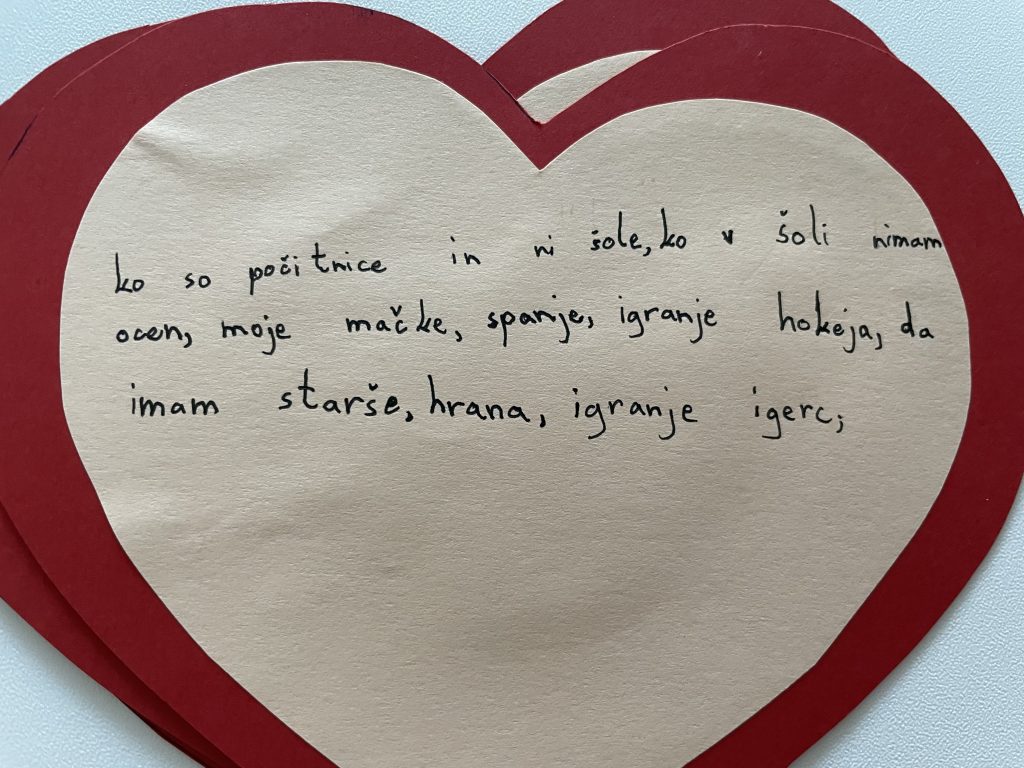 ko so počitnice in ni šole, ko v šoli nimam
ocen, moje mačke, spanje, igranje hokeja, da
imam starše, hrana, igranje igerc;